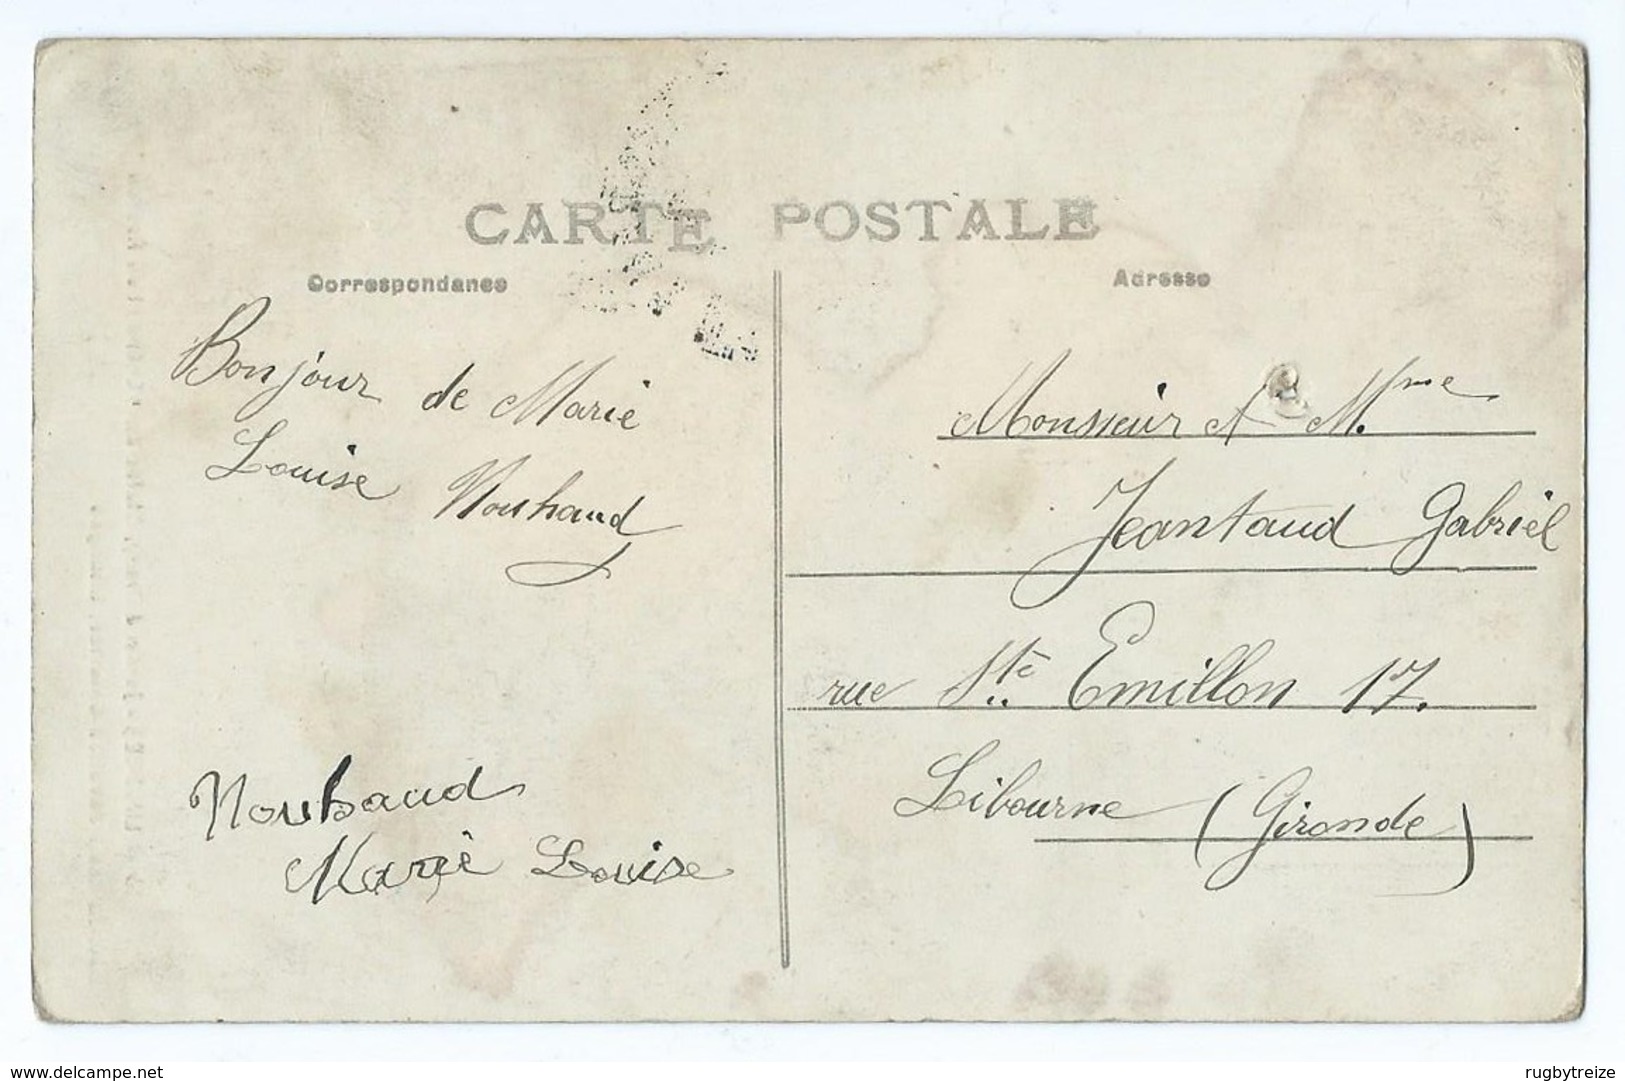 CARTE POSTALE
Correspondance
Adresse
Bonjour de Marie
Louise Nouhaud
Nouhaud
Marie Louise
Monsieur & Mme
Jeantaud Gabriel
rue Ste Emillon 17.
Libourne (Gironde)
www.delcampe.net
rugbytreize